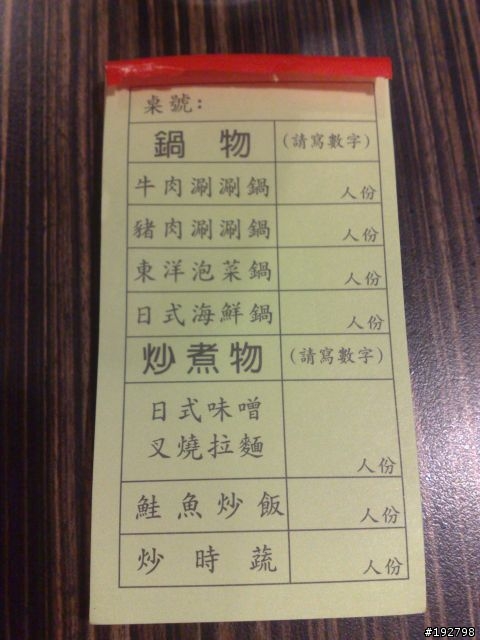 桌號:
鍋物 (請寫數字)
牛肉涮涮鍋 人份
豬肉涮涮鍋 人份
東洋泡菜鍋 人份
日式海鮮鍋 人份
炒煮物 (請寫數字)
日式味噌
叉燒拉麵 人份
鮭魚炒飯 人份
炒時蔬 人份
#192798